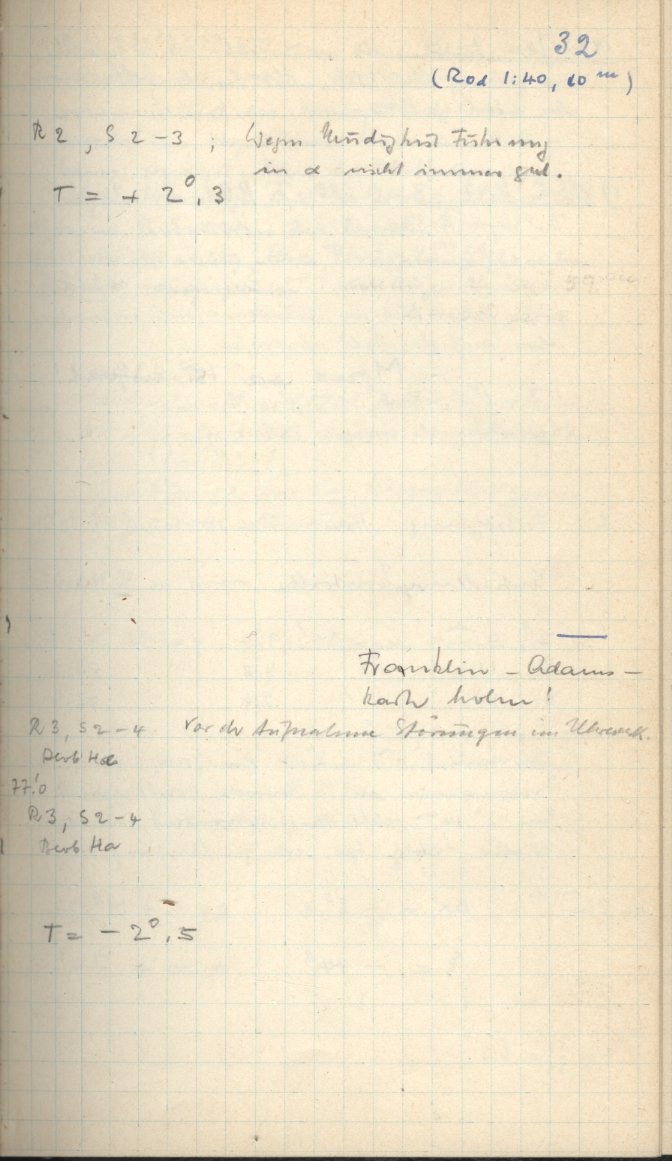 32
(Rod 1:40, 10 m)
R2, S 2-3; Wegen Müdigkeit Führung
in α nicht immer gut.
T = + 2°,3
Franklin-Adams-
Karte holen!
R3, S2-4 vor der Aufnahme Störungen im Uhrwerk.
Beob Ha
77.0
R3, S2-4
Beob Ha
T = - 2°,5